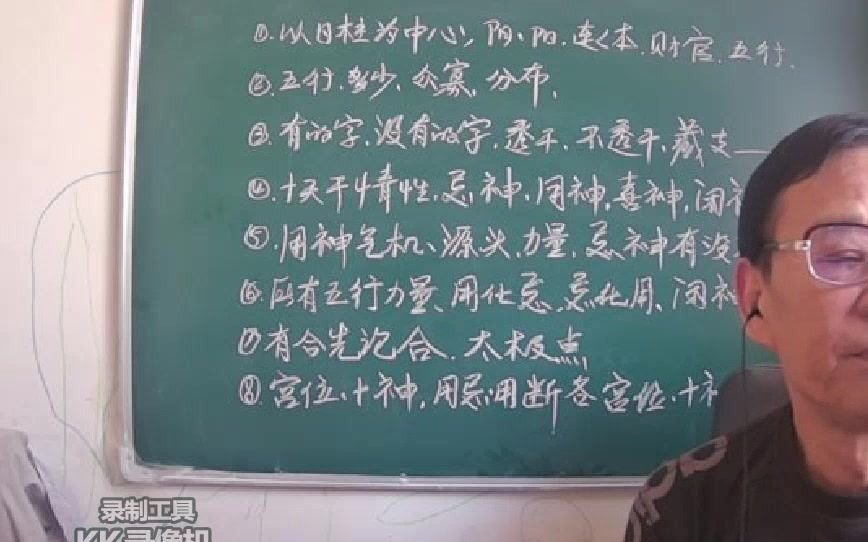 ①.以日柱为中心,阴、阳.连体.财官.五行.
②.五行.多少、众寡.分布.
③.有的字.没有的字,透干,不透干,藏支—
④.十天干情性.忌神.用神,喜神,闲神
⑤.用神气机、源头.力量.忌神有没
⑥.所有五行力量.用化忌.忌化用、闲神
⑦有合先论合.太极点
⑧.宫位.十神,用忌.用断各宫位.十神
录制工具
KK录像机